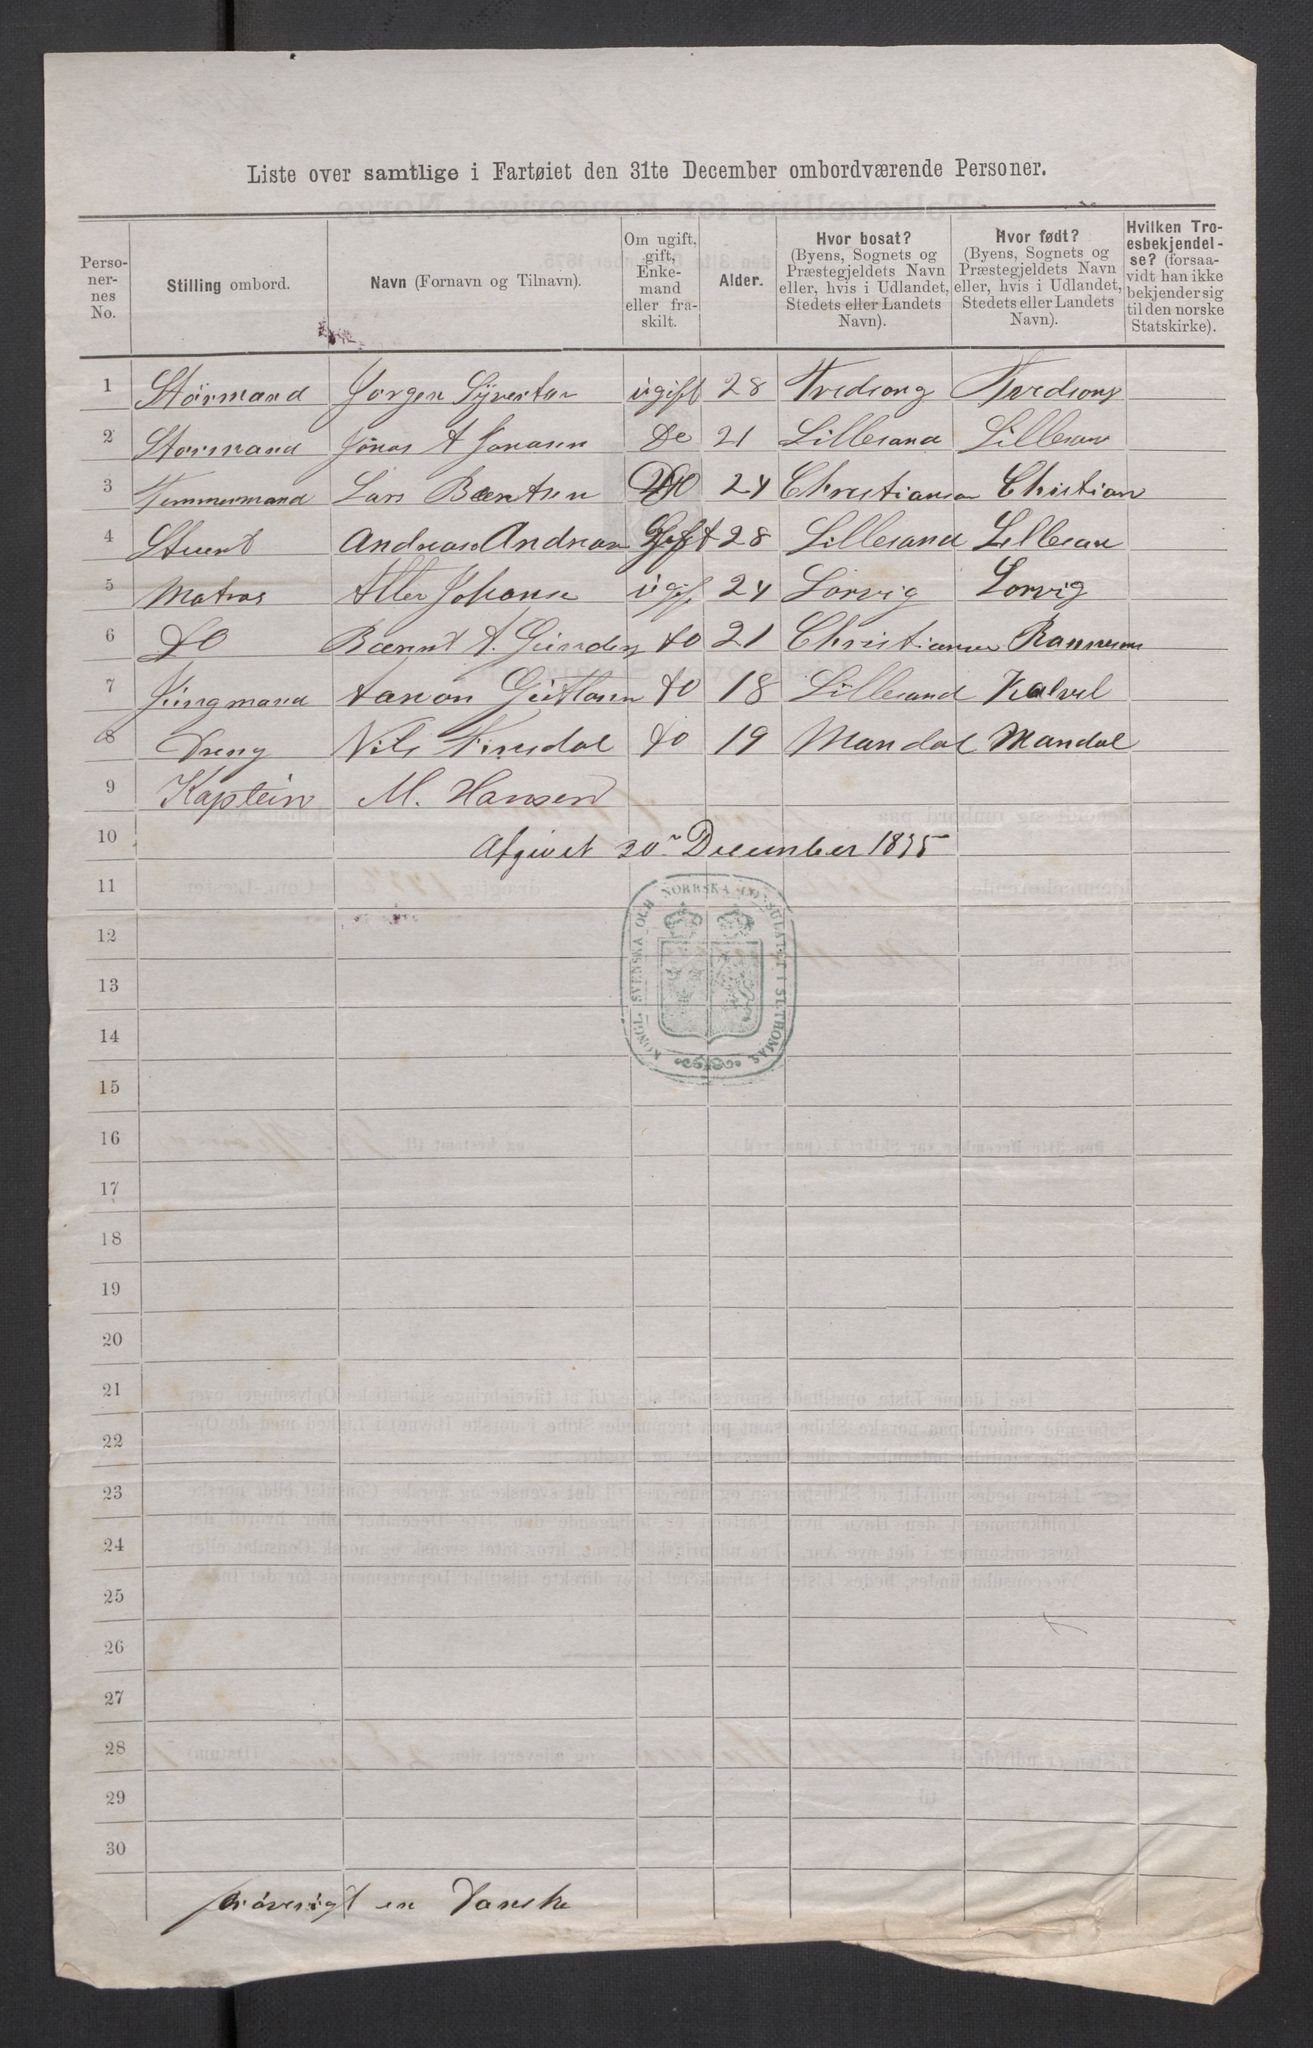 Liste over samtlige i Fartøiet den 31te December ombordværende Personer.
Perso-
ner-
nes
No.
Stilling ombord.
Navn (Fornavn og Tilnavn).
Om ugift,
gift,
Enke-
mand
eller fra-
skilt.
Alder.
Hvor bosat?
(Byens, Sognets og
Præstegjeldets Navn
eller, hvis i Udlandet,
Stedets eller Landets
Navn).
Hvor født?
(Byens, Sognets og
Præstegjeldets Navn
eller, hvis i Udlandet,
Stedets eller Landets
Navn).
Hvilken Tro-
esbekjendel-
se? (forsaa-
vidt han ikke
bekjender sig
til den norske
Statskirke).
1 Störmand Jorgen ugift 28
2 Stormand Jonas A Jonasen Do 21 Lillesand Lillesan
3 Temmermand Lars Bærntsen Do 24 Christiansan Christian
4 Stuert Andreas Andreas Gift 28 Lillesand Lillesan
5 Matros Johanse ugift 24 Lorvig Lorvig
6 Do Bærent A. do 21 Christiansan
7 Jungmand Aanon do 18 Lillesand
8 Dreng Nils do 19 Mandal Mandal
9 Kaptein M. Hansen
10 Afgivet 20n December 1875
11
KONGL. SVENSKA OCH NORRSKA CONSULATET I ST. THOMAS
12
13
14
15
16
17
18
19
20
21
22
23
24
25
26
27
28
29
30
en Danske